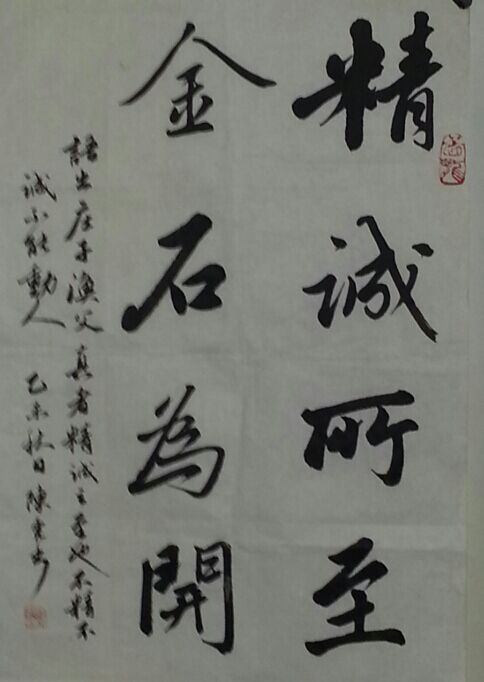 精誠所至
金石為開
語出庄子漁父真者精誠之至也不精不
誠不能動人 乙未秋日陳